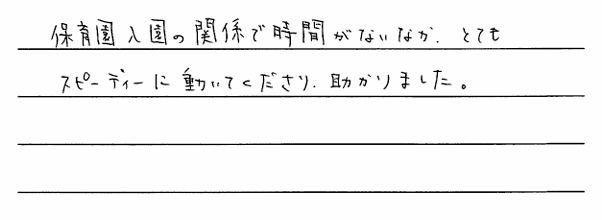 保育園入園の関係で時間がないなか、とても
スピーディーに動いてくださり、助かりました。